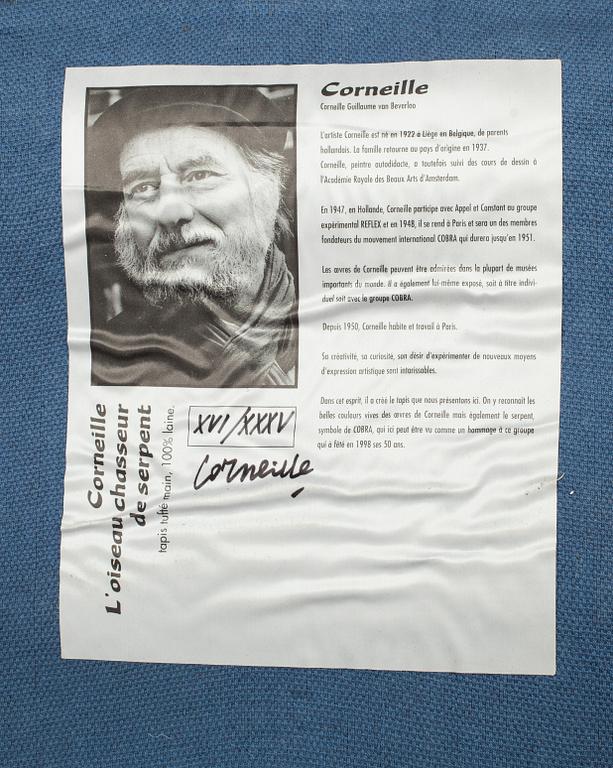 Corneille
Corneille Guillaume van Beverloo
L'artiste Corneille est né en 1922 à Liège en Belgique, de parents
hollandais. La famille retourne au pays d'origine en 1937.
Corneille, peintre autodidacte, a toutefois suivi des cours de dessin à
l'Académie Royale des Beaux Arts d'Amsterdam.
En 1947, en Hollande, Corneille participe avec Appel et Constant au groupe
expérimental REFLEX et en 1948, il se rend à Paris et sera un des membres
fondateurs du mouvement international COBRA qui durera jusqu'en 1951.
Les œvres de Corneille peuvent être admirées dans la plupart de musées
importants du monde. Il a également lui-même exposé, soit à titre indivi-
duel soit avec le groupe COBRA.
Depuis 1950, Corneille habite et travail à Paris.
Sa créativité, sa curiosité, son désir d'expérimenter de nouveaux moyens
d'expression artistique sont intarissables.
Dans cet esprit, il a créé le tapis que nous présentons ici. On y reconnaît les
belles couleurs vives des œvres de Corneille mais également le serpent,
symbole de COBRA, qui ici peut être vu comme un hommage à ce groupe
qui a fêté en 1998 ses 50 ans.
Corneille
L'oiseau chasseur
de serpent
tapis tufté main, 100% laine.
XVI/XXXV
Corneille